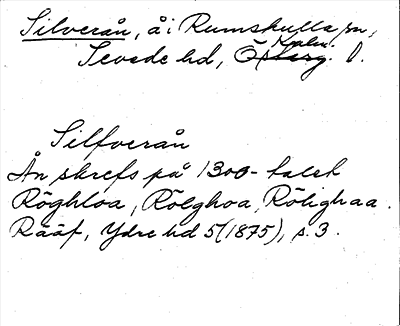 Silverån, å i Rumskulla sn,
Sevede hd, Kalm. l.
Silfverån
Ån skrefs på 1300-talet
Röghloa, Rölghoa, Rölighaa.
Rääf, Ydre hd 5 (1875), s. 3.